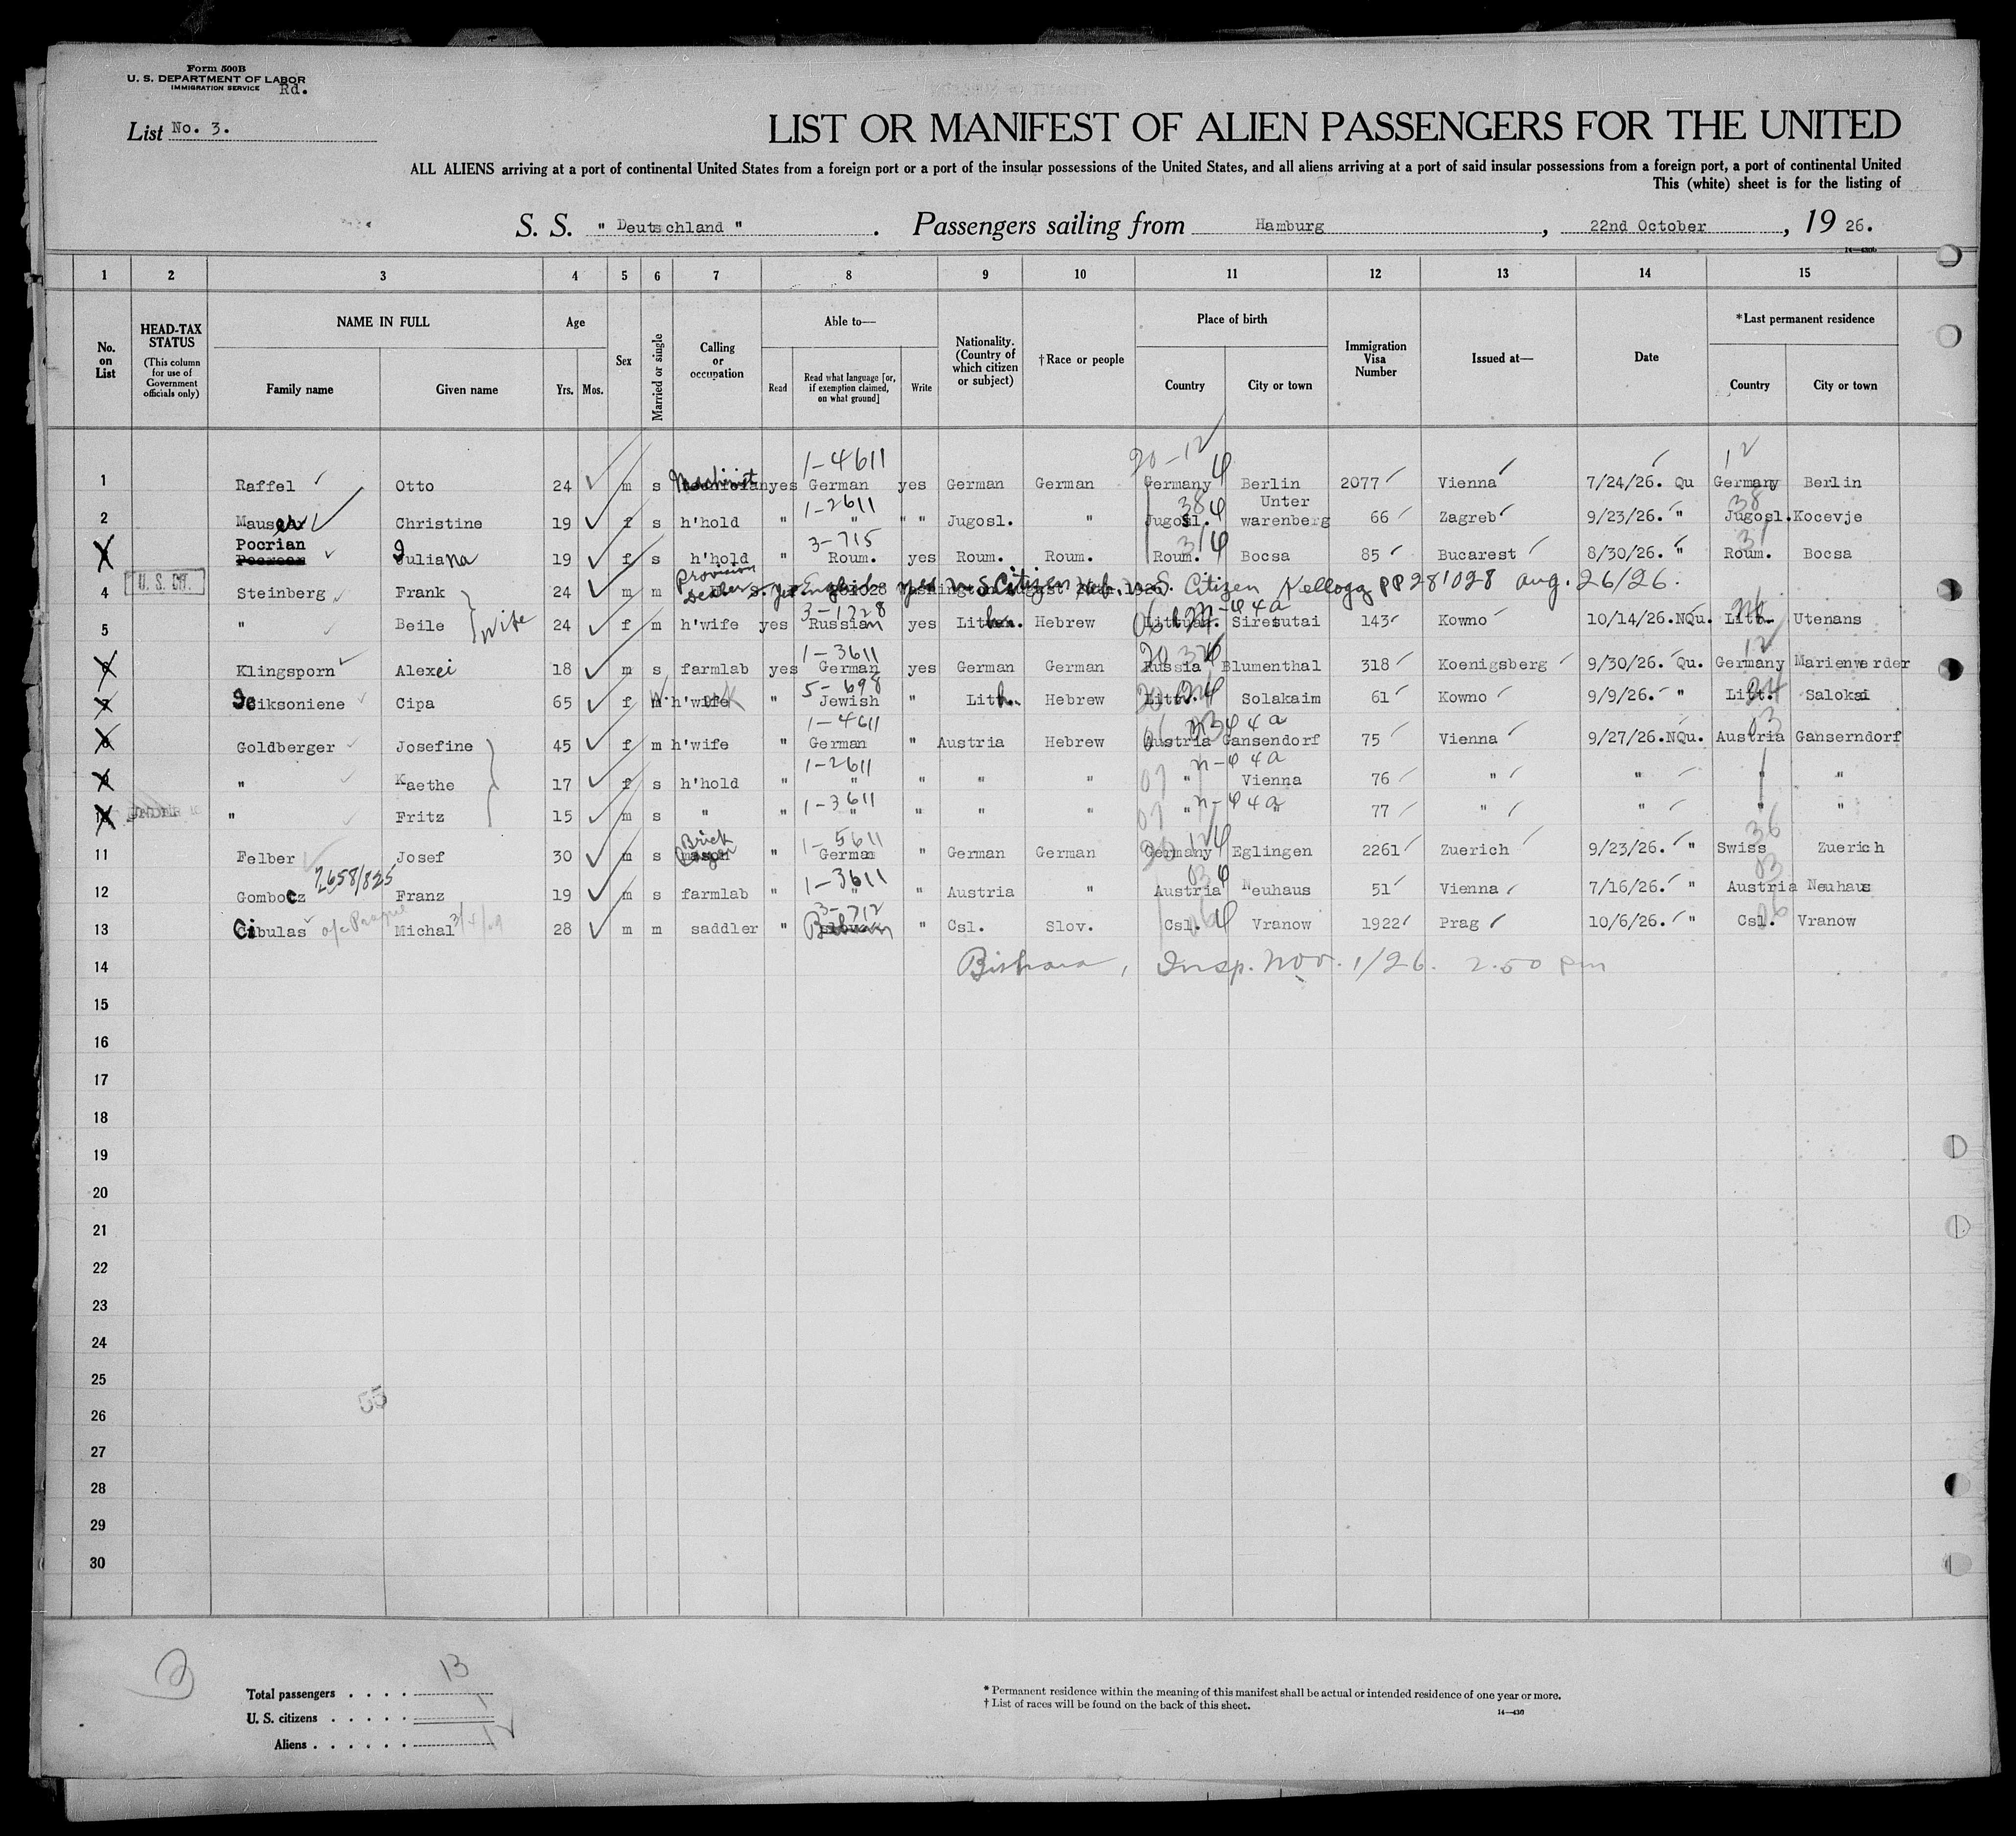 Form 500B
U. S. DEPARTMENT OF LABOR
IMMIGRATION SERVICE
Rd.
List No. 3.
LIST OR MANIFEST OF ALIEN PASSENGERS FOR THE UNITED
ALL ALIENS arriving at a port of continental United States from a foreign port or a port of the insular possessions of the United States, and all aliens arriving at a port of said insular possessions from a foreign port, a port of continental United
This (white) sheet is for the listing of
S. S. " Deutschland " . Passengers sailing from Hamburg , 22nd October , 19 26.
1 2 3 4 5 6 7 8 9 10 11 12 13 14 15
No. on List
HEAD-TAX STATUS
(This column for use of Government officials only)
NAME IN FULL
Family name Given name
Age
Yrs. Mos.
Sex
Married or single
Calling or occupation
Able to—
Read
Read what language [or, if exemption claimed, on what ground]
Write
Nationality. (Country of which citizen or subject)
†Race or people
Place of birth
Country City or town
Immigration Visa Number
Issued at—
Date
*Last permanent residence
Country City or town
20-12 1-4611 12
1 Raffel Otto 24 m s Machinist yes German yes German German Germany Berlin 2077 Vienna 7/24/26. Qu Germany Berlin
1-2611 38 Unter 38
2 Mauser Christine 19 f s h'hold " " " " Jugosl. " Jugosl. warenberg 66 Zagreb 9/23/26. " Jugosl. Kocevje
Pocrian 3-715 31 31
3 Juliana 19 f s h'hold " Roum. yes Roum. Roum. Roum. Bocsa 85 Bucarest 8/30/26. " Roum. Bocsa
U. S. CIT.
Provision
4 Steinberg Frank 24 m m Dealer yes English yes U.S. Citizen U.S. Citizen Kellogg PP 281028 Aug. 26/26.
3-1728
5 " Beile wife 24 f m h'wife yes Russian yes Lith. Hebrew Lituan. Siresutai 143 Kowno 10/14/26. NQu. Lith. Utenans
1-3611 12
6 Klingsporn Alexei 18 m s farmlab yes German yes German German Russia Blumenthal 318 Koenigsberg 9/30/26. Qu. Germany Marienwerder
5-698
7 Cipa 65 f W. h'wife " Jewish " Lith. Hebrew Solakaim 61 Kowno 9/9/26. " Salokai
1-4611 03
8 Goldberger Josefine 45 f m h'wife " German " Austria Hebrew Austria Gansendorf 75 Vienna 9/27/26. NQu. Austria Ganserndorf
1-2611 n-φ 4a
9 " Kaethe 17 f s h'hold " " " " " " Vienna 76 " " " "
1-3611 n-φ 4a
10 " Fritz 15 m s " " " " " " " " 77 " " " "
Brick 1-5611 36
11 Felber Josef 30 m s mason " German " German German Germany Eglingen 2261 Zuerich 9/23/26. " Swiss Zuerich
2658/825 1-3611 03 03
12 Gombocz Franz 19 m s farmlab " " " Austria " Austria Neuhaus 51 Vienna 7/16/26. " Austria Neuhaus
3-712
13 Cibulas a/c Prague Michal 28 m m saddler " " Csl. Slov. Csl. Vranow 1922 Prag 10/6/26. " Csl. Vranow
14 Insp. Nov. 1/26. 2.50 pm
15
16
17
18
19
20
21
22
23
24
25
55
26
27
28
29
30
Total passengers . . . . 13
U. S. citizens . . . . . 1
Aliens . . . . . . 12
* Permanent residence within the meaning of this manifest shall be actual or intended residence of one year or more.
† List of races will be found on the back of this sheet.
14—430